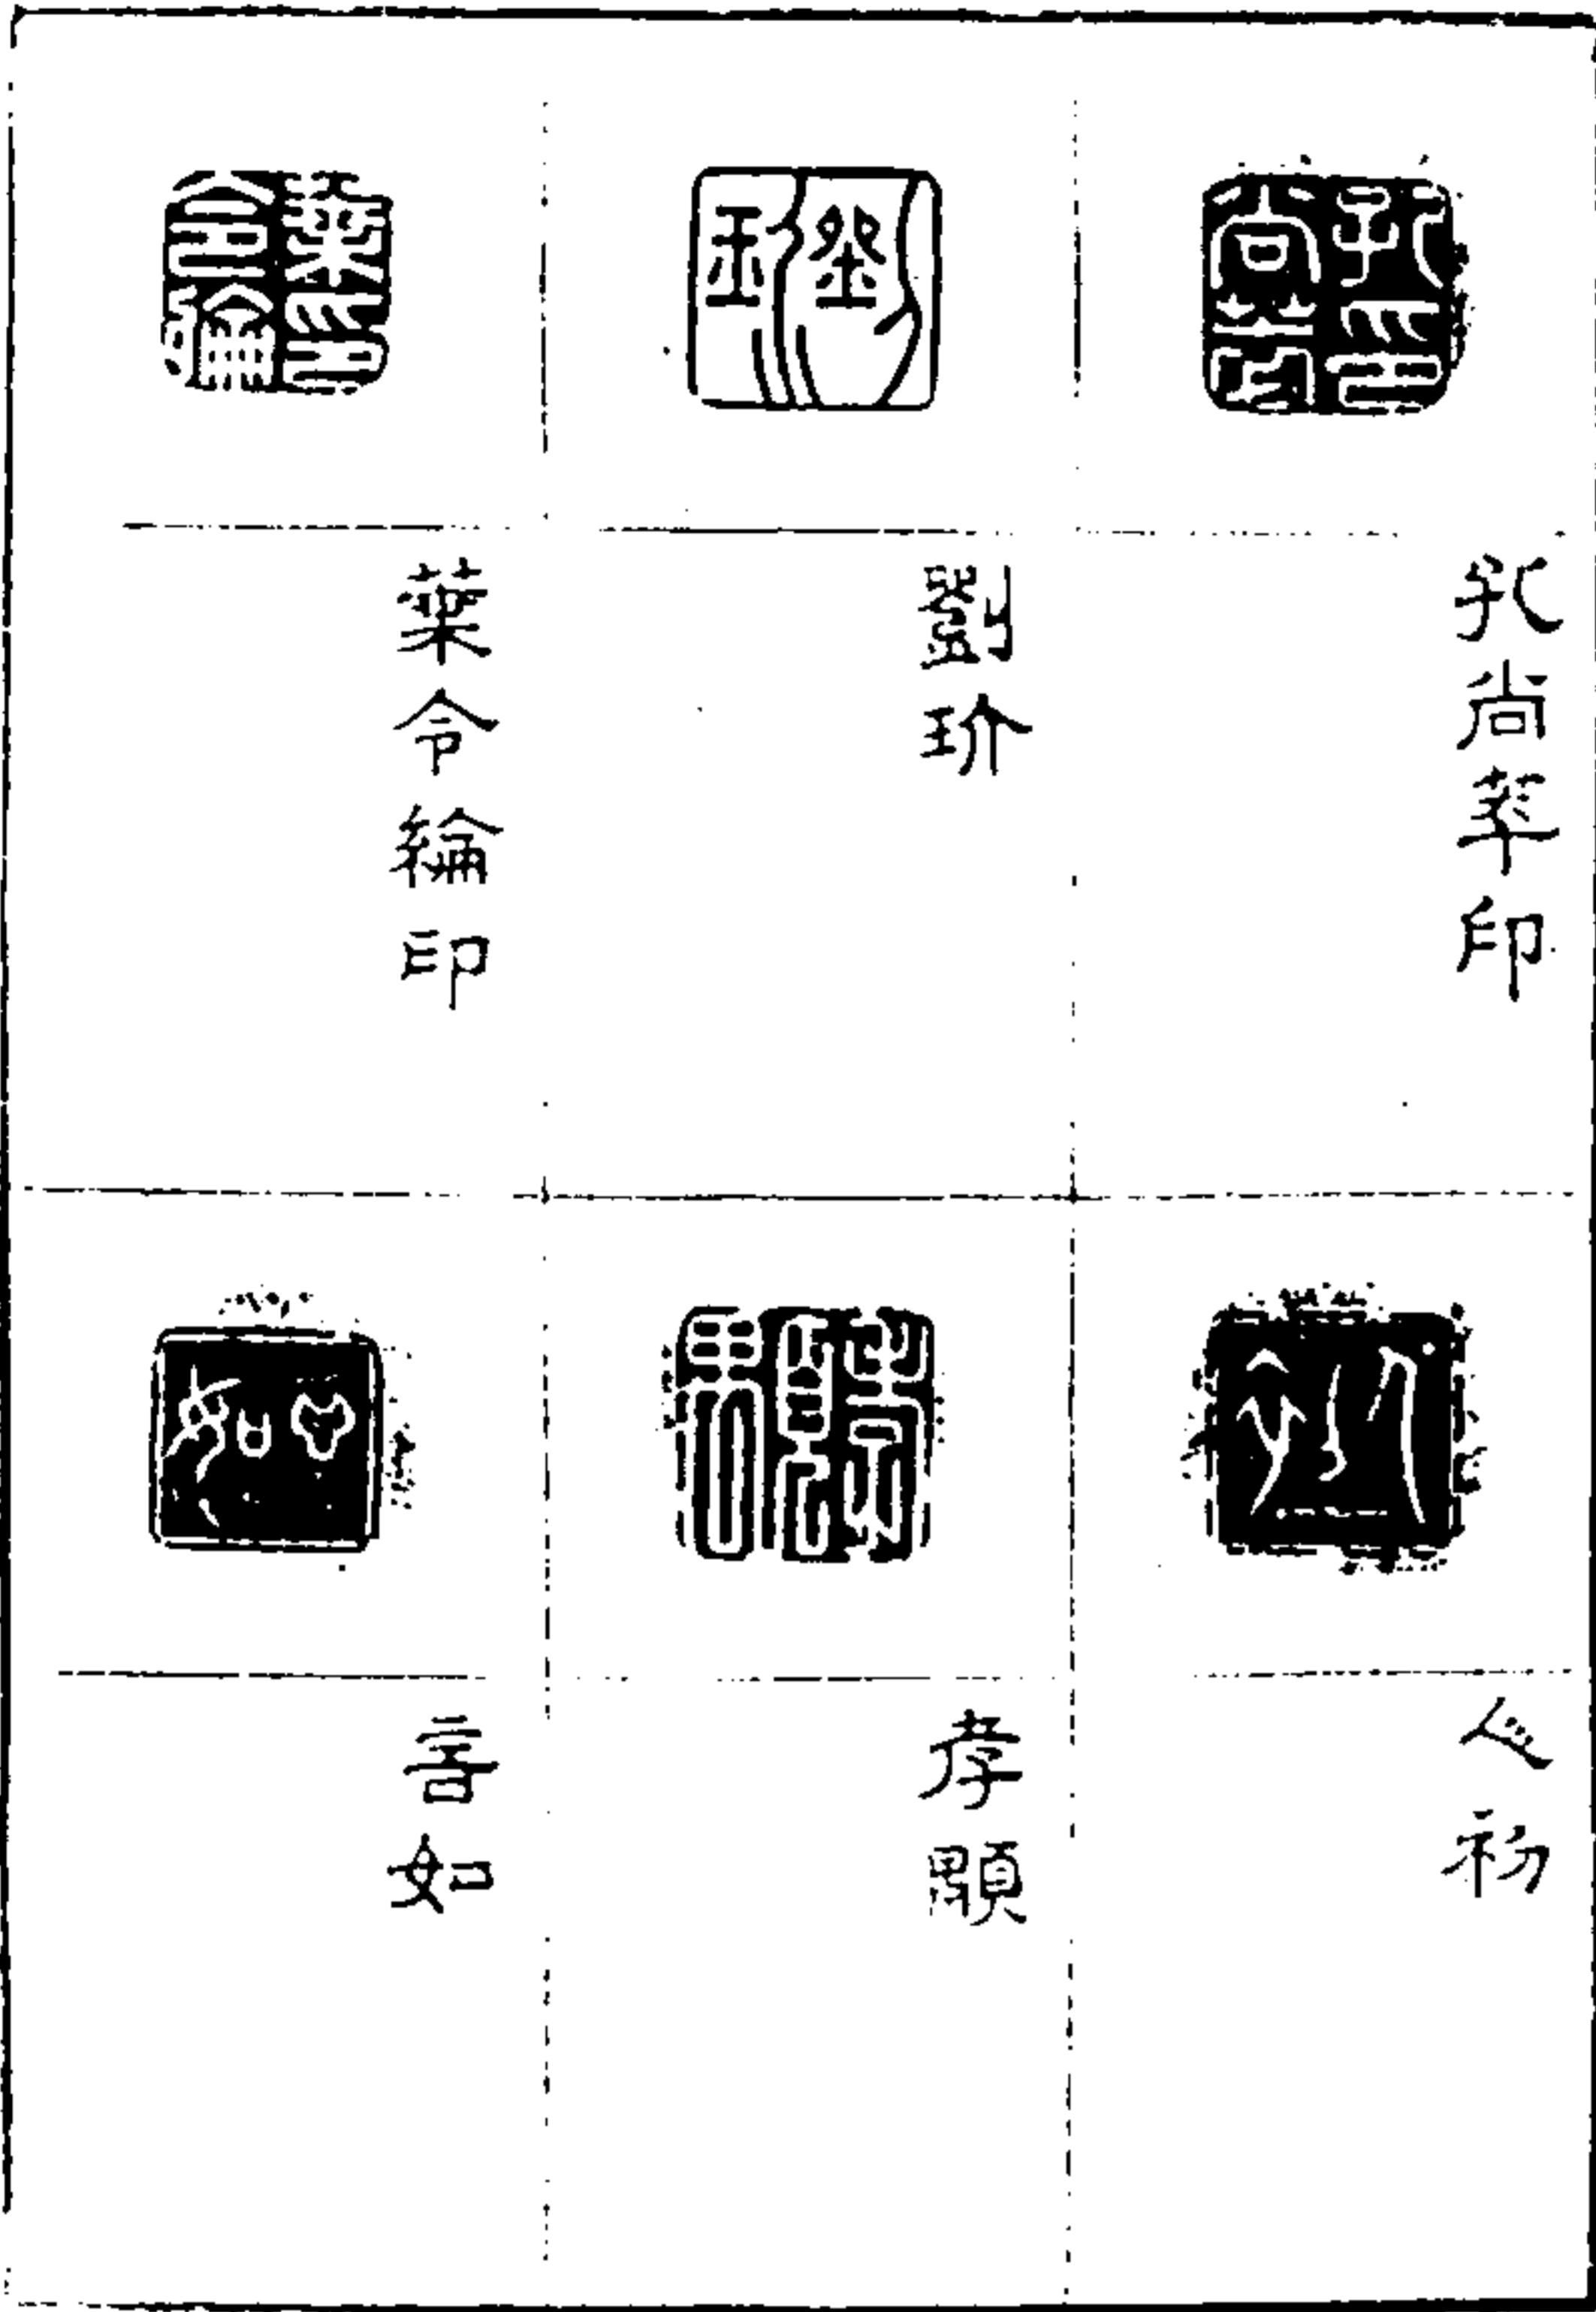 孔尚萃印
劉玠
葉令綸印
人初
孝顯
如